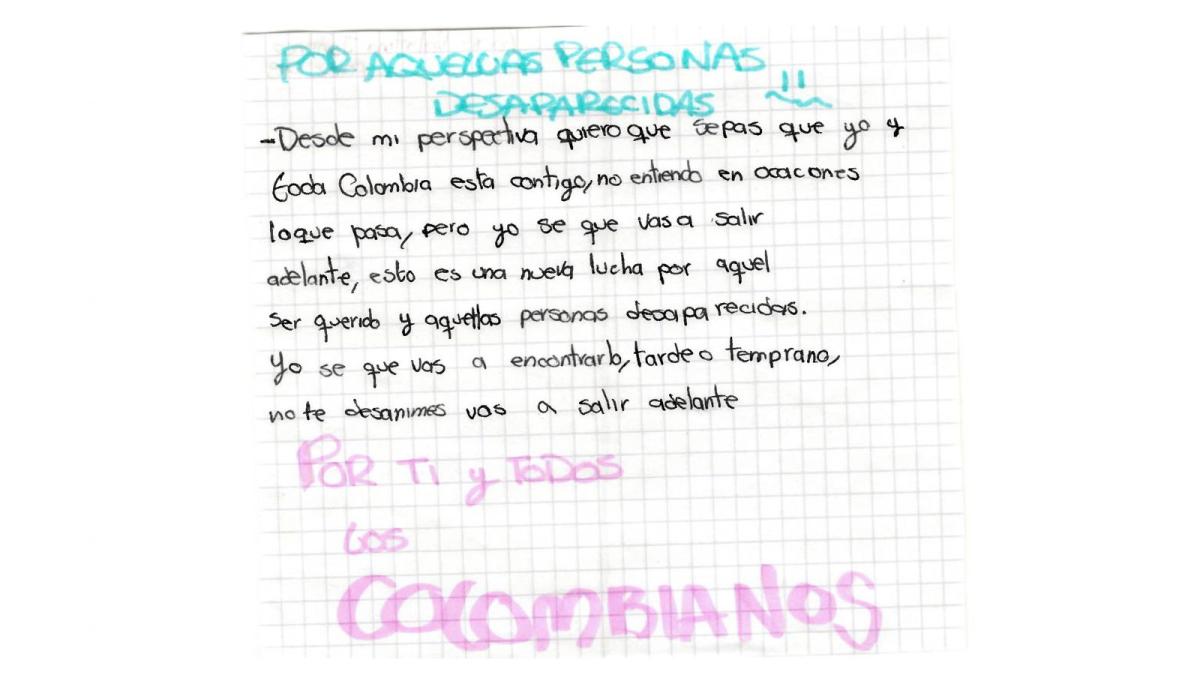 POR AQUELLAS PERSONAS
DESAPARECIDAS !!
-Desde mi perspectiva quiero que sepas que yo y
toda Colombia esta contigo, no entiendo en ocaciones
loque pasa, pero yo se que vas a salir
adelante, esto es una nueva lucha por aquel
ser querido y aquellas personas desaparecidas.
Yo se que vas a encontrarlo, tarde o temprano,
no te desanimes vas a salir adelante
POR TI y TODOS
LOS
COLOMBIANOS